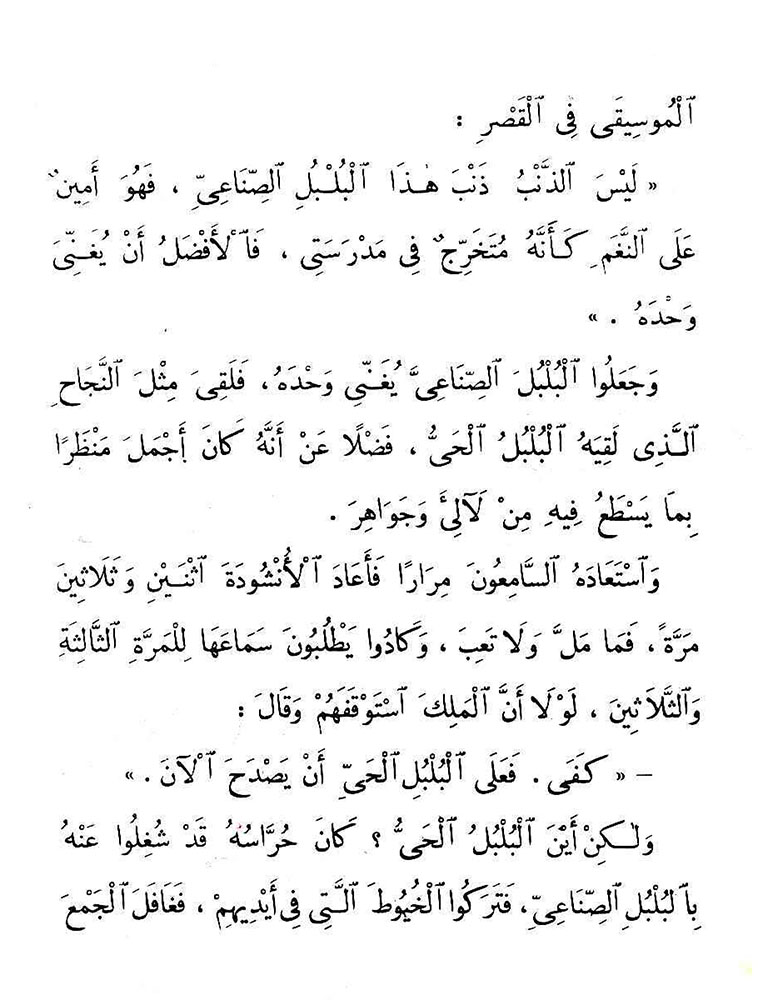 ٱلْمُوسِيقَى فِى ٱلْقَصْرِ :
« لَيْسَ ٱلذَّنْبُ ذَنْبَ هٰذَا ٱلْبُلْبُلِ ٱلصِّنَاعِىِّ ، فَهُوَ أَمِينٌ
عَلَى ٱلنَّغَمِ كَأَنَّهُ مُتَخَرِّجٌ فِى مَدْرَسَتِى ، فَٱلْأَفْضَلُ أَنْ يُغَنِّىَ
وَحْدَهُ . »
وَجَعَلُوا ٱلْبُلْبُلَ ٱلصِّنَاعِىَّ يُغَنِّى وَحْدَهُ ، فَلَقِىَ مِثْلَ ٱلنَّجَاحِ
ٱلَّذِى لَقِيَهُ ٱلْبُلْبُلُ ٱلْحَىُّ ، فَضْلًا عَنْ أَنَّهُ كَانَ أَجْمَلَ مَنْظَرًا
بِمَا يَسْطَعُ فِيهِ مِنْ لَآلِئَ وَجَوَاهِرَ .
وَٱسْتَعَادَهُ ٱلسَّامِعُونَ مِرَارًا فَأَعَادَ ٱلْأُنْشُودَةَ ٱثْنَيْنِ وَثَلَاثِينَ
مَرَّةً ، فَمَا مَلَّ وَلَا تَعِبَ ، وَكَادُوا يَطْلُبُونَ سَمَاعَهَا لِلْمَرَّةِ ٱلثَّالِثَةِ
وَٱلثَّلَاثِينَ ، لَوْلَا أَنَّ ٱلْمَلِكَ ٱسْتَوْقَفَهُمْ وَقَالَ :
– « كَفَى . فَعَلَى ٱلْبُلْبُلِ ٱلْحَىِّ أَنْ يَصْدَحَ ٱلْآنَ . »
وَلٰكِنْ أَيْنَ ٱلْبُلْبُلُ ٱلْحَىُّ ؟ كَانَ حُرَّاسُهُ قَدْ شُغِلُوا عَنْهُ
بِٱلْبُلْبُلِ ٱلصِّنَاعِىِّ ، فَتَرَكُوا ٱلْخُيُوطَ ٱلَّتِى فِى أَيْدِيهِمْ ، فَغَافَلَ ٱلْجَمْعَ